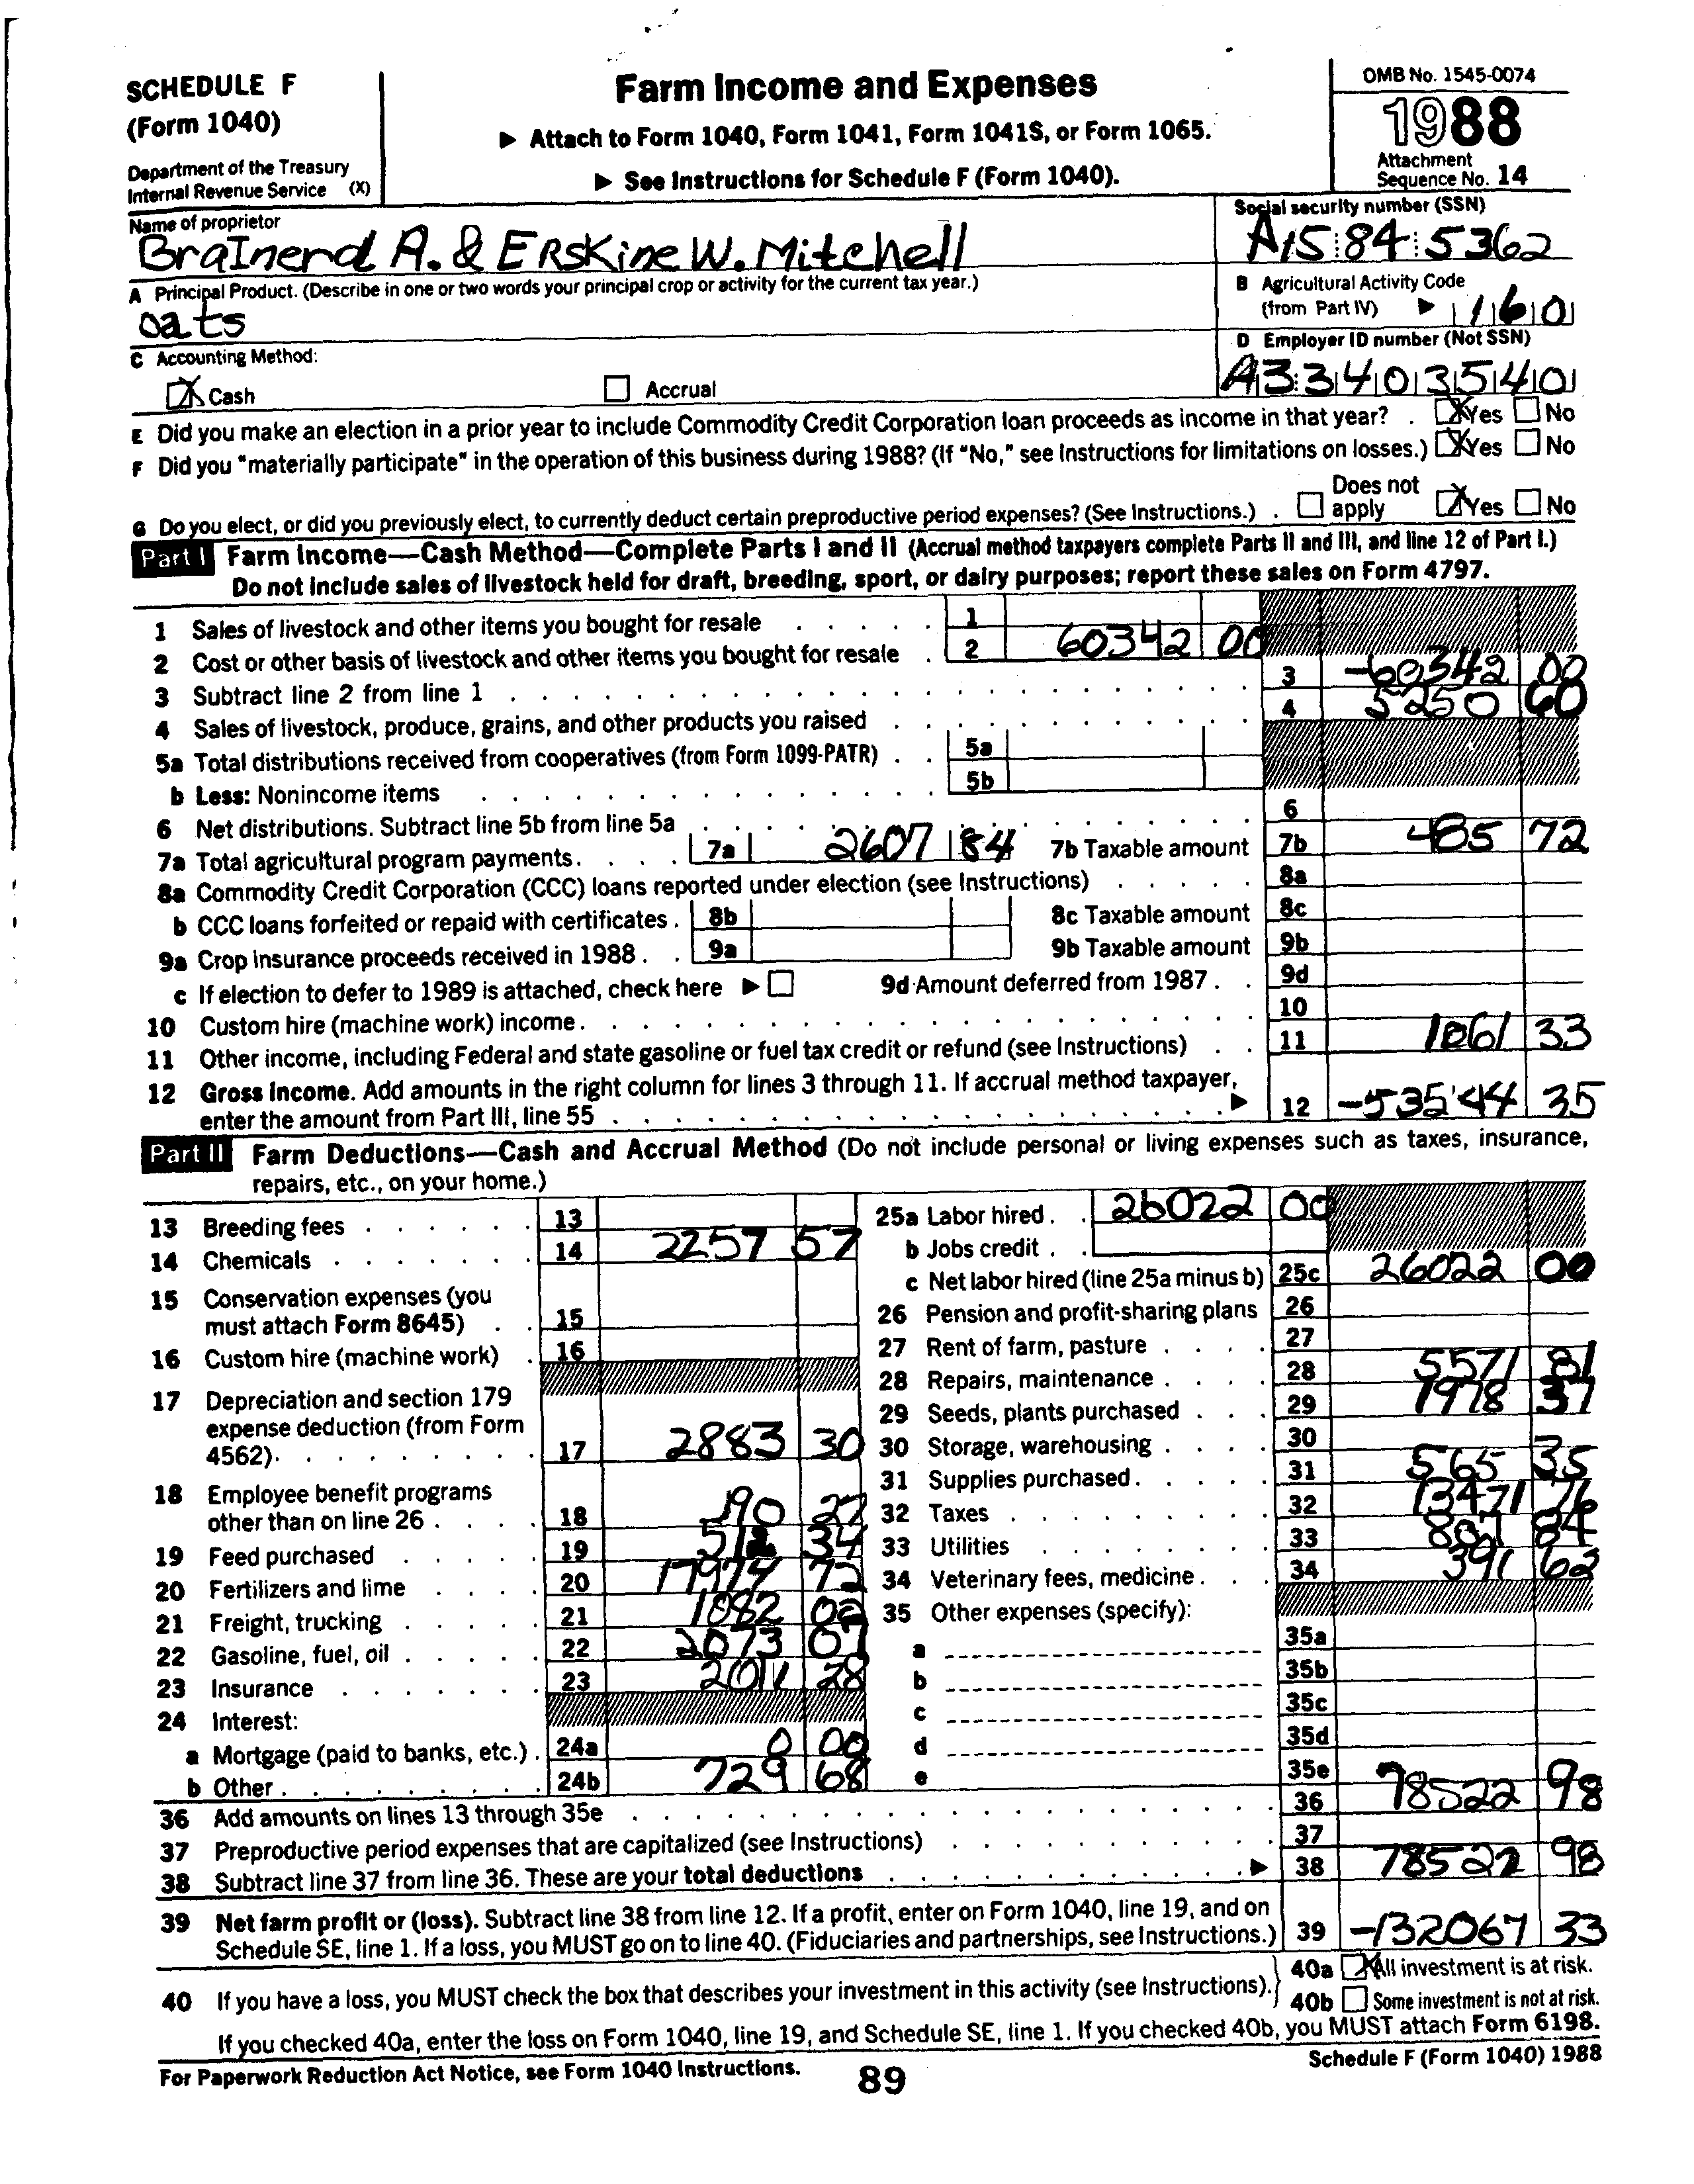 SCHEDULE F
(Form 1040)
Department of the Treasury
Internal Revenue Service (X)
Farm Income and Expenses
▶ Attach to Form 1040, Form 1041, Form 1041S, or Form 1065.
▶ See Instructions for Schedule F (Form 1040).
OMB No. 1545-0074
1988
Attachment
Sequence No. 14
Name of proprietor
BraInerd A. & ERSKine W. Mitchell
Social security number (SSN)
A15 84 5362
A Principal Product. (Describe in one or two words your principal crop or activity for the current tax year.)
oats
B Agricultural Activity Code
(from Part IV) ▶ 160
C Accounting Method:
X Cash Accrual
D Employer ID number (Not SSN)
A33403540
E Did you make an election in a prior year to include Commodity Credit Corporation loan proceeds as income in that year? . X Yes No
F Did you "materially participate" in the operation of this business during 1988? (If "No," see Instructions for limitations on losses.) X Yes No
G Do you elect, or did you previously elect, to currently deduct certain preproductive period expenses? (See Instructions.) . Does not apply X Yes No
Part I Farm Income—Cash Method—Complete Parts I and II (Accrual method taxpayers complete Parts II and III, and line 12 of Part I.)
Do not include sales of livestock held for draft, breeding, sport, or dairy purposes; report these sales on Form 4797.
1 Sales of livestock and other items you bought for resale 1
2 Cost or other basis of livestock and other items you bought for resale 2 60342 00
3 Subtract line 2 from line 1 3 -60342 00
4 Sales of livestock, produce, grains, and other products you raised 4 5250 60
5a Total distributions received from cooperatives (from Form 1099-PATR) 5a
b Less: Nonincome items 5b
6 Net distributions. Subtract line 5b from line 5a 6
7a Total agricultural program payments 7a 2607 84 7b Taxable amount 7b 485 72
8a Commodity Credit Corporation (CCC) loans reported under election (see Instructions) 8a
b CCC loans forfeited or repaid with certificates 8b 8c Taxable amount 8c
9a Crop insurance proceeds received in 1988 9a 9b Taxable amount 9b
c If election to defer to 1989 is attached, check here ▶ 9d Amount deferred from 1987 9d
10 Custom hire (machine work) income 10
11 Other income, including Federal and state gasoline or fuel tax credit or refund (see Instructions) 11 1061 33
12 Gross Income. Add amounts in the right column for lines 3 through 11. If accrual method taxpayer,
enter the amount from Part III, line 55 ▶ 12 -53544 35
Part II Farm Deductions—Cash and Accrual Method (Do not include personal or living expenses such as taxes, insurance,
repairs, etc., on your home.)
13 Breeding fees 13
14 Chemicals 14 2257 57
15 Conservation expenses (you
must attach Form 8645) 15
16 Custom hire (machine work) 16
17 Depreciation and section 179
expense deduction (from Form
4562) 17 2883 30
18 Employee benefit programs
other than on line 26 18 190 27
19 Feed purchased 19 512 34
20 Fertilizers and lime 20 17974 72
21 Freight, trucking 21 1082 02
22 Gasoline, fuel, oil 22 2073 07
23 Insurance 23 2011 28
24 Interest:
a Mortgage (paid to banks, etc.) 24a 0 00
b Other 24b 729 68
25a Labor hired 26022 00
b Jobs credit
c Net labor hired (line 25a minus b) 25c 26022 00
26 Pension and profit-sharing plans 26
27 Rent of farm, pasture 27
28 Repairs, maintenance 28 5571 81
29 Seeds, plants purchased 29 1978 37
30 Storage, warehousing 30
31 Supplies purchased 31 565 35
32 Taxes 32 13471 76
33 Utilities 33 807 84
34 Veterinary fees, medicine 34 391 62
35 Other expenses (specify):
a 35a
b 35b
c 35c
d 35d
e 35e
36 Add amounts on lines 13 through 35e 36 78522 98
37 Preproductive period expenses that are capitalized (see Instructions) 37
38 Subtract line 37 from line 36. These are your total deductions ▶ 38 78522 98
39 Net farm profit or (loss). Subtract line 38 from line 12. If a profit, enter on Form 1040, line 19, and on
Schedule SE, line 1. If a loss, you MUST go on to line 40. (Fiduciaries and partnerships, see Instructions.) 39 -132067 33
40 If you have a loss, you MUST check the box that describes your investment in this activity (see Instructions).
40a X All investment is at risk.
40b Some investment is not at risk.
If you checked 40a, enter the loss on Form 1040, line 19, and Schedule SE, line 1. If you checked 40b, you MUST attach Form 6198.
For Paperwork Reduction Act Notice, see Form 1040 Instructions.
89
Schedule F (Form 1040) 1988